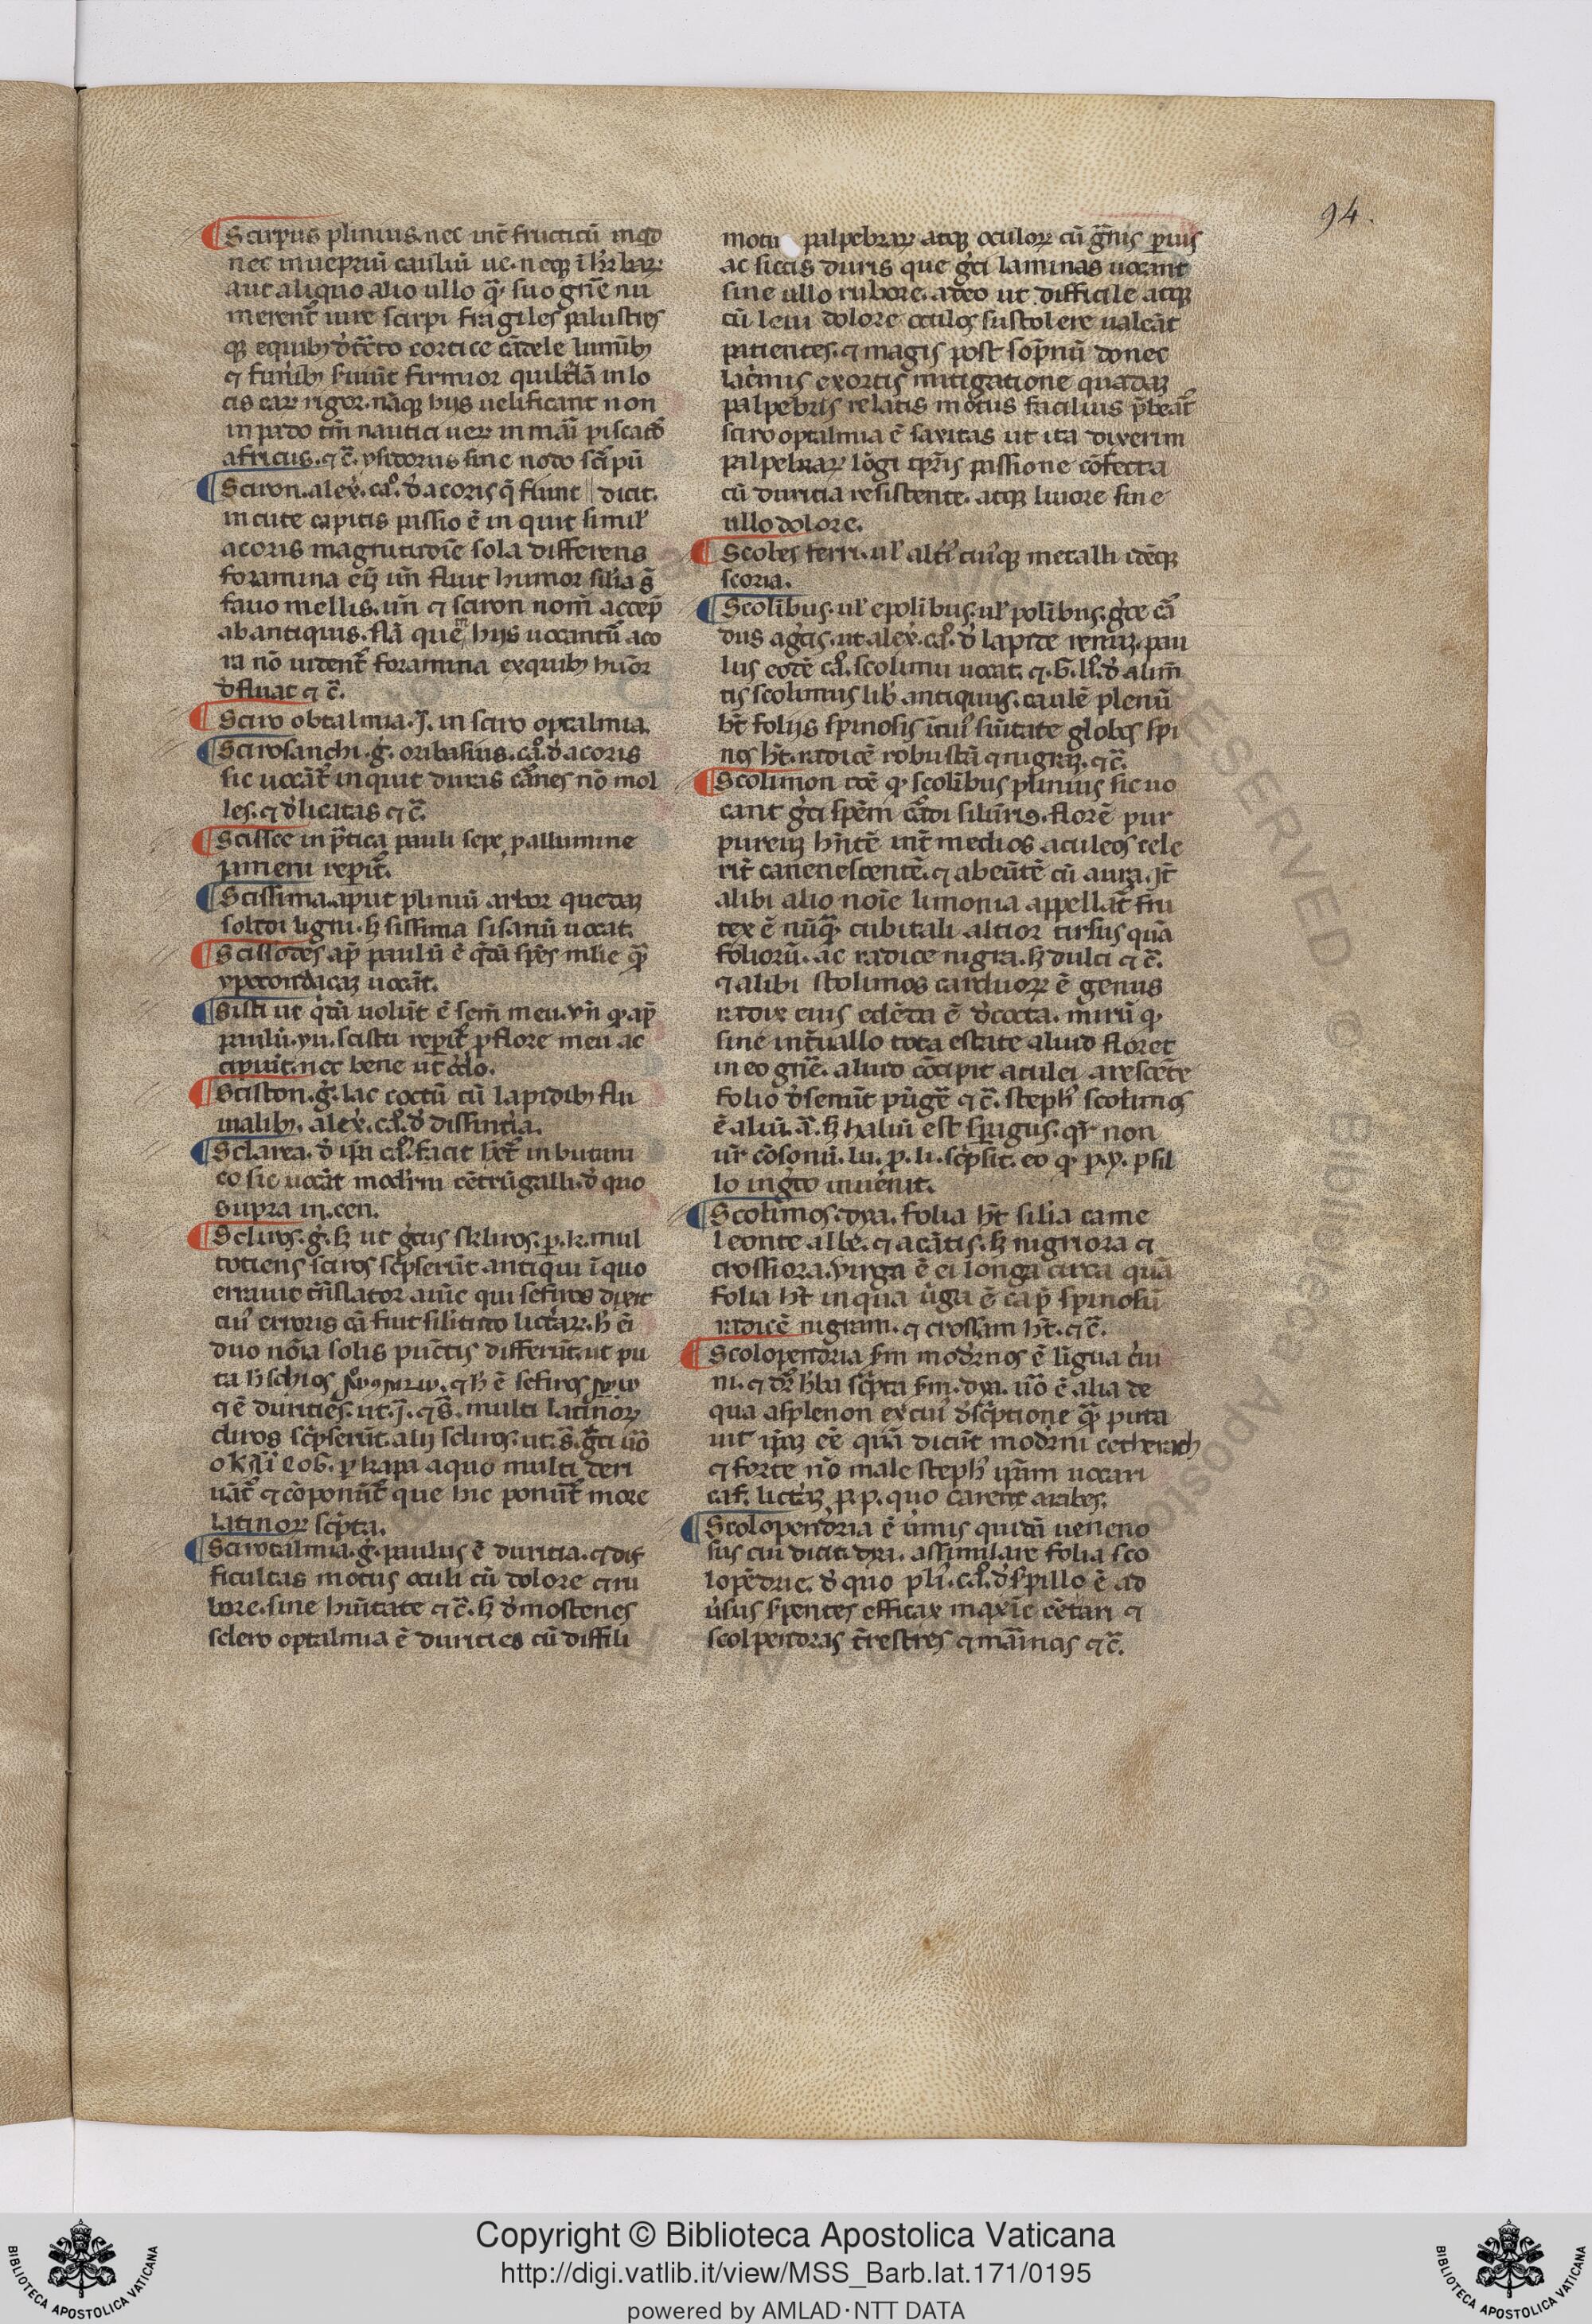 94.
Scirpus plinius. nec int̃ fructicũ mqd
nec in uepriũ cauliũ ue. neqȝ ĩ h̃barꝝ
aut aliquo alio ullo qᷓ suo gñe nu
merent̃ iure scirpi fragiles palustres
qȝ equibȝ d̾t̃cto cortice cãdele luminibȝ
cis earꝝ rigor. nãqȝ hijs uelificant non
in pado tm̃ nautici uerꝝ in mãi piscatõ
africus. ⁊ c̃. ysidorus sine nodo scĩpũ
Sciron. alex̾. ca̾. d̾ acoris q̃ fiunt || dicit.
in cute capitis passio ẽ in quit simil̾
acoris magnitudĩe sola differens
foramina eiȝ uñ fluit humor sil̾ia s̃
fauo mellis. uñ ⁊ sciron nom̃ accep̃
ab antiquis. nã que hijs uocantũ aco
ra nõ uident̃ foramina exquibȝ huõr
d̾fluat ⁊ c̃.
Sciro obtalmia. J. in sciro optalmia.
Scirosanchi. g̾. oribasius. ca̾. d̾ acoris
sic uocãt̃ inquit duras cãrnes nõ mol
les. ⁊ d̾licatas ⁊ c̃.
Scissee in p̃tica pauli sepe p allumine
iameni reperit̃.
Scissima. aput pliniũ arbor quedaȝ
solidi ligni. ȝ sissima sisanũ uocat.
Scissodes ap̃ paulũ ẽ q̾dã sp̃es mlĩe qᷓ
ypocondiacaȝ uocãt.
Sisti ut q̾dã uolũt ẽ sem̃ meu. uñ qꝫ ap̃
paulũ. yu. scistu reperit̃ p flore meu ac
cipuit. nec bene ut c̾do.
Sciston. g̾. lac coctũ cũ lapidibȝ flu
uialibȝ. alex̾. ca̾. d̾ dissint̾ia.
Sclarea. d̾ q̾ñ ca̾. facit h̾et̃ in butani
co sic uocãt mod̾rni cẽtrũgalli. d̾ quo
supra in. cen.
Scliros. g̾. ȝ ut g̾cus skliros. p. k. mul
totiens sciros sc̾pserũt antiqui ĩ quo
errauit tñslator auic̃ qui sefiros dixit
cui̾ erroris cã fuit sil̾itudo litt̾arꝝ. h̾ ẽi
duo nõia solis pũctis differũt. ut pu
⁊ ẽ durities. ut. J. ⁊ s̃. multi latinorꝝ
cliros sc̾pserũt. alij scliros. ut. s̃. g̾ci uõ
. p kapa a quo multi deri
uãt̃ ⁊ cõponũt̃ que hic ponũt̃ more
latinorꝝ sc̾pta.
Scirotalmia. g̾. paulus ẽ duricia. ⁊ dif
ficultas motus oculi cũ dolore ⁊ ru
bore. sine hũitate ⁊ c̃. ȝ d̾mostenes
sclero optalmia ẽ durities cũ diffili
motu palpebrarꝝ atqȝ oculorꝝ cũ g̾mis paruis
ac siccis duris que g̾ci laminas uocant
sine ullo rubore. adeo ut difficile atqȝ
cũ leui dolore oculos sustolere ualeãt
patientes. ⁊ magis post sopnũ donec
lac̾mis exortis mitigatione quadaȝ
palpebris relatis motus facilius p̃beat̃
sciro optalmia ẽ saxitas ut ita dixerim
palpebrarꝝ lõgi tp̃ris passione cõfecta
cũ duricia resistente. atqȝ liuore sine
ullo dolore.
Scobes ferri. ul̾ alt̾i̾ cui̾qȝ metalli idẽqȝ
scoria.
Scolibus. ul̾ epolibus. ul̾ polibus. g̾ce cã
dus ag̾tis. ut alex̾. ca̾. d̾ lapide renuȝ. pau
lus eodẽ ca̾. scolimu uocat. ⁊. G. li̾. d̾ alim̃
tis scolimus lib̾ antiquus. caulẽ plenũ
h̾t folijs spinosis ĩ cui̾ sũitate globos spi
nos h̾t. radicẽ robustã ⁊ nigrã. ⁊ c̃.
Scolimon idẽ qꝫ scolibus plinius sic uo
cant g̾ci sp̃em cãrdi siluris. florẽ pur
pureuȝ hñtẽ int̃ medios aculeos cele
rit̃ canenescentẽ. ⁊ abeũtẽ cũ aura. It̃
alibi alio noĩe limonia appellat̃ fru
tex ẽ nũqᷓ cubitali altior tirsus quã
foliorũ. ac radice nigra. ȝ dulci ⁊ c̃.
⁊ alibi scolimos carduorꝝ ẽ genus
radix eius edẽda ẽ d̾cocta. mirũ qꝫ
sine int̾uallo tota estate aliud floret
in eo gñe. aliud cõcipit aculei arescẽte
folio d̾sinũt pũge̾ ⁊ c̃. steph̾ scolimos
ẽ aliũ. ã. ȝ haliũ est frigus. qr̾ non
ur̃ cõsonũ. lu. p. li. sc̾psit. eo qꝫ p. y. psil
lo in g̾co inuenit.
Scolimos. dya. folia h̾t sil̾ia came
leonte albe. ⁊ acãtis. ȝ nigriora ⁊
crossiora. virga ẽ ei longa circa quã
folia h̾t in qua u̾ga ẽ cap̃ spinosũ
radicẽ nigram. ⁊ crossam h̾t. ⁊ c̃.
Scolopendria sm̃ mod̾rnos ẽ lĩgua c̾ui
ni. ⁊ dr̃ h̾ba sc̾pta sm̃. dya. uõ ẽ alia de
qua asplenon ex cui̾ d̾sc̾ptione qᷓ puta
uit ip̃aȝ eẽ quã dicũt mod̾rni cetherach
⁊ forte nõ male steph̾ ip̃am uocari
caf. litt̾aȝ p. p. quo carent arabes.
Scolopendria ẽ u̾mis quidã ueneno
sus cui dicit. dya. assimilare folia sco
lopẽdrie. d̾ quo pli̾. ca̾. d̾ s̾pillo ẽ ad
u̾sus s̾pentes efficax maxĩe cẽtari ⁊
scolpendras t̃restres ⁊ mãinas ⁊ c̃.
Copyright © Biblioteca Apostolica Vaticana
http://digi.vatlib.it/view/MSS_Barb.lat.171/0195
powered by AMLAD·NTT DATA
BIBLIOTECA APOSTOLICA VATICANA
BIBLIOTECA APOSTOLICA VATICANA